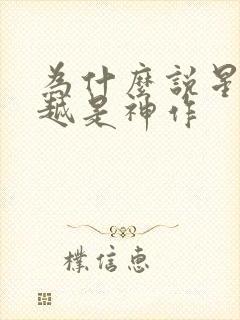 為什麼說星
越是神作
樸信惠